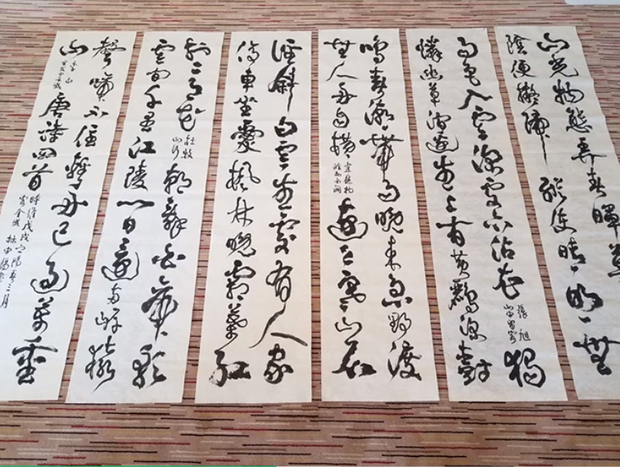 山光物態弄春暉莫
陰便擬歸縱使晴明無
雨色入雲深處亦沾衣 張旭 山中留客 獨
憐幽草澗邊生上有黃鸝深樹
鳴春潮帶雨晚來急野渡
無人舟自橫 韋應物 滁州西澗 遠上寒山石
徑斜白雲生處有人家
停車坐愛楓林晚霜葉紅
於二月花 杜牧 山行 朝辭白帝彩
雲間千里江陵一日還兩岸猿
聲啼不住輕舟已過萬重
山 李白 唐詩四首 時維戊戌之陽春三月